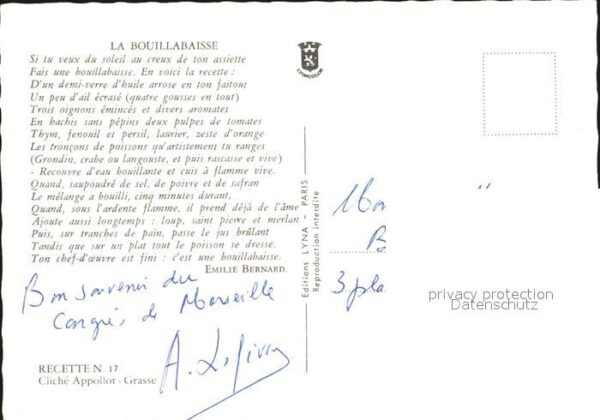 LA BOUILLABAISSE
Si tu veux du soleil au creux de ton assiette
Fais une bouillabaisse. En voici la recette :
D'un demi-verre d'huile arrose en ton faitout
Un peu d'ail écrasé (quatre gousses en tout)
Trois oignons émincés et divers aromates
En hachis sans pépins deux pulpes de tomates
Thym, fenouil et persil, laurier, zeste d'orange
Les tronçons de poissons qu'artistement tu ranges
(Grondin, crabe ou langouste, et puis rascasse et vive)
- Recouvre d'eau bouillante et cuis à flamme vive.
Quand, saupoudré de sel, de poivre et de safran
Le mélange a bouilli, cinq minutes durant,
Quand, sous l'ardente flamme, il prend déjà de l'âme
Ajoute aussi longtemps : loup, saint pierre et merlan
Puis, sur tranches de pain, passe le jus brûlant
Tandis que sur un plat tout le poisson se dresse.
Ton chef-d'œuvre est fini : c'est une bouillabaisse.
EMILIE BERNARD.
Bon souvenir du
Congrès de Marseille
RECETTE N. 17
Cliché Appollot - Grasse
LYONCOLOR
Editions LYNA - PARIS
Reproduction interdite
B
3 pla
privacy protection
Datenschutz